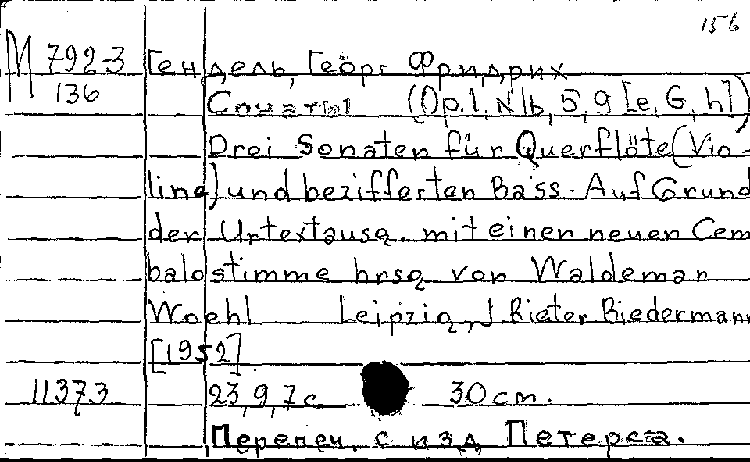 156
М 792-3 Гендель, Георг Фридрих
136 Сонаты (Op. 1, N 1b, 5, 9 [e, G, h])
Drei Sonaten für Querflöte (Vio-
line) und bezifferten Bass. Auf Grund
der Urtextausg. mit einen neuen Cem
balostimme hrsg von Waldemar
Woehl Leipzig, J. Rieter Biedermann
[1952]
11373 23, 9, 7 с. 30 cm.
Перепеч. с изд Петерса.